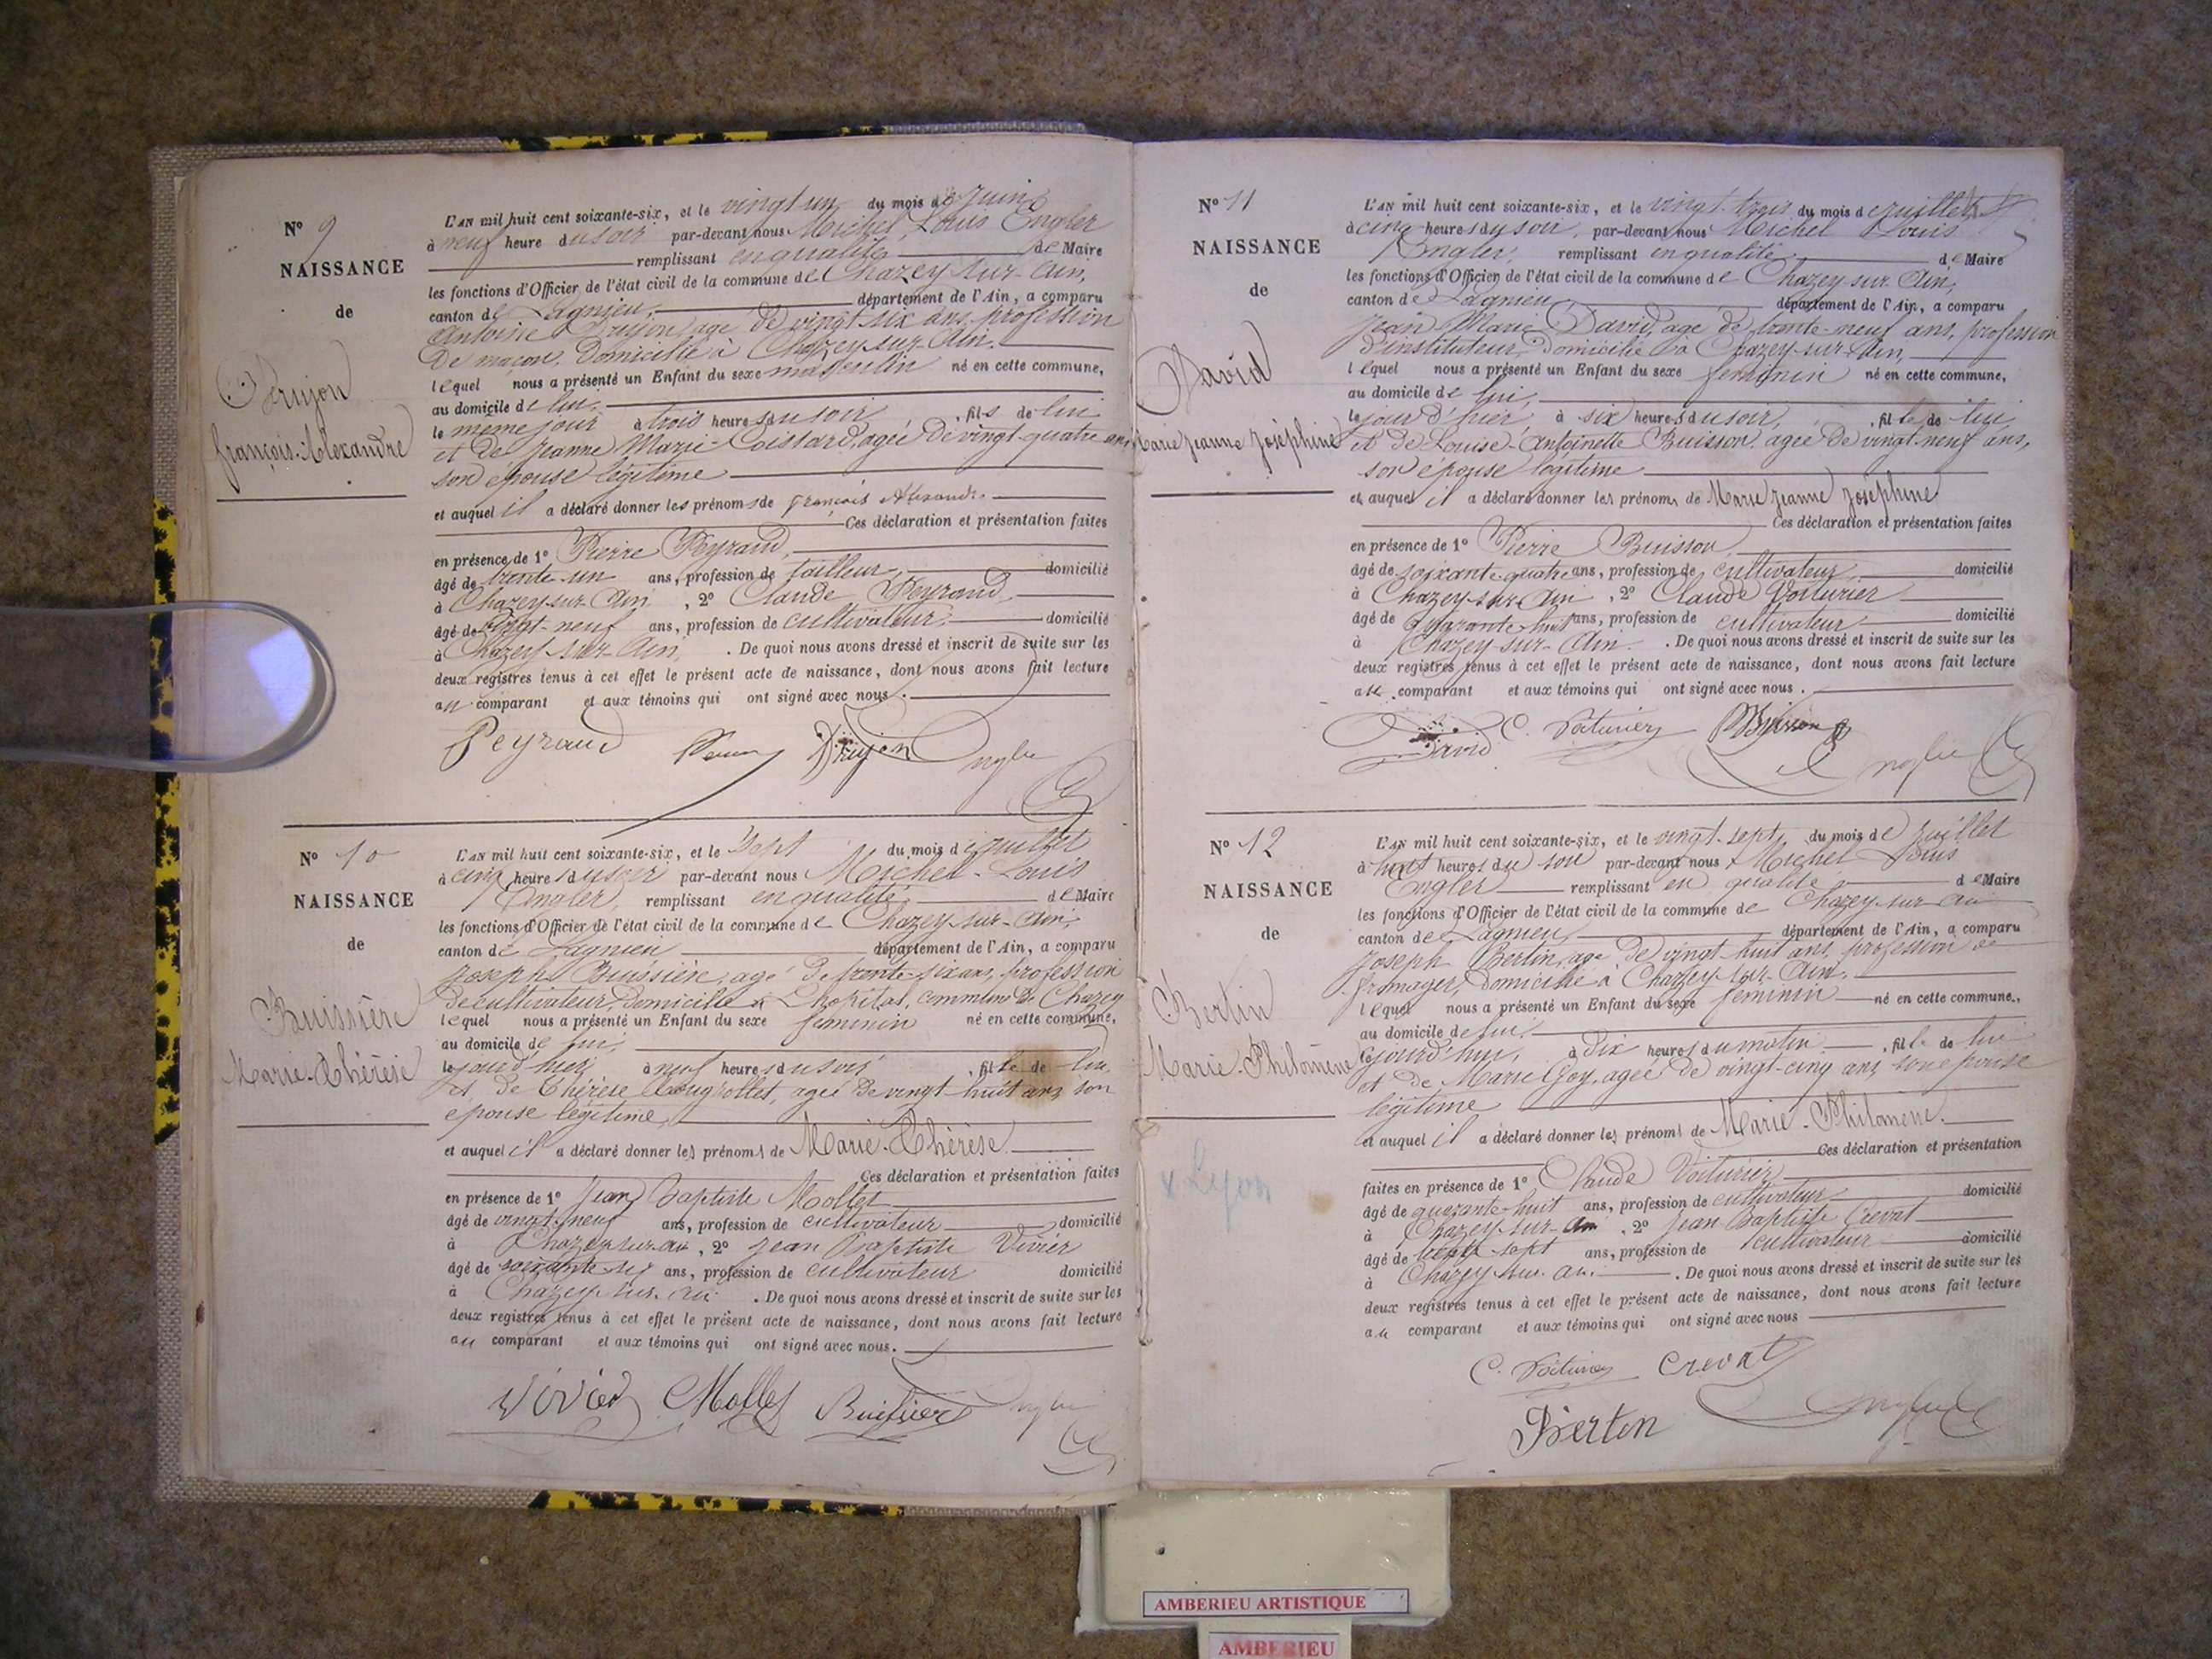 N° 9
NAISSANCE
de
Drujon
françois-Alexandre
L'AN mil huit cent soixante-six, et le vingt un du mois de Juin
à neuf heure du soir par-devant nous Michel Louis Engler
remplissant en qualité de Maire
les fonctions d'Officier de l'état civil de la commune de Chazey-sur-Ain,
canton de Lagnieu, département de l'Ain, a comparu
Antoine Drujon, agé de vingt six ans, profession
de maçon, domicilié à Chazey sur Ain.
lequel nous a présenté un Enfant du sexe masculin né en cette commune,
au domicile de lui,
le même jour à trois heures du soir, fils de lui
et de Jeanne Marie agée de vingt-quatre ans,
son epouse légitime
et auquel il a déclaré donner les prénoms de françois Alexandre
Ces déclaration et présentation faites
en présence de 1° Pierre Peyraud,
âgé de trente-un ans, profession de tailleur, domicilié
à Chazey-sur-Ain, 2° Claude Peyraud,
âgé de vingt-neuf ans, profession de cultivateur, domicilié
à Chazey-sur-Ain, . De quoi nous avons dressé et inscrit de suite sur les
deux registres tenus à cet effet le présent acte de naissance, dont nous avons fait lecture
au comparant et aux témoins qui ont signé avec nous.
Peyraud Drujon Engler
N° 10
NAISSANCE
de
Buissière
Marie-Thérèse
L'AN mil huit cent soixante-six, et le Sept du mois de juillet
à cinq heures du soir par-devant nous Michel-Louis
Engler, remplissant en qualité de Maire
les fonctions d'Officier de l'état civil de la commune de Chazey-sur-Ain,
canton de Lagnieu département de l'Ain, a comparu
Joseph Buissière, agé de trente-six ans, profession
de cultivateur, domicilié à L'hopital, commune de Chazey
lequel nous a présenté un Enfant du sexe feminin né en cette commune,
au domicile de lui,
le jour d'hier à neuf heures du soir, fille de lui,
et de Thérèse agée de vingt-huit ans, son
epouse légitime,
et auquel il a déclaré donner les prénoms de Marie-Thérèse
Ces déclaration et présentation faites
en présence de 1° Jean Baptiste Mollet
âgé de vingt-neuf ans, profession de cultivateur domicilié
à Chazey sur ain, 2° Jean Baptiste Vivier
âgé de soixante six ans, profession de cultivateur domicilié
à Chazey-sur-ain . De quoi nous avons dressé et inscrit de suite sur les
deux registres tenus à cet effet le présent acte de naissance, dont nous avons fait lecture
au comparant et aux témoins qui ont signé avec nous.
Vivier Mollet Buissiere Engler
N° 11
NAISSANCE
de
David
Marie Jeanne Joséphine
L'AN mil huit cent soixante-six, et le vingt-trois du mois de juillet
à cinq heures du soir, par-devant nous Michel Louis
Engler, remplissant en qualité de Maire
les fonctions d'Officier de l'état civil de la commune de Chazey sur Ain,
canton de Lagnieu, département de l'Ain, a comparu
Jean Marie David, age de trente-neuf ans, profession
d'instituteur, domicilié à Chazey-sur-Ain,
lequel nous a présenté un Enfant du sexe feminin né en cette commune,
au domicile de lui,
le jour d'hier à six heures du soir, fille de lui
et de Louise-Antoinette Buisson agée de vingt-neuf ans,
son épouse légitime
et auquel il a déclaré donner les prénoms de Marie Jeanne Joséphine
Ces déclaration et présentation faites
en présence de 1° Pierre Buisson,
âgé de soixante-quatre ans, profession de cultivateur domicilié
à Chazey-sur-Ain, 2° Claude Voiturier
âgé de quarante-huit ans, profession de cultivateur domicilié
à Chazey-sur-Ain. . De quoi nous avons dressé et inscrit de suite sur les
deux registres tenus à cet effet le présent acte de naissance, dont nous avons fait lecture
au comparant et aux témoins qui ont signé avec nous.
David C. Voiturier Buisson Engler
N° 12
NAISSANCE
de
Bertin
Marie-Philomène
x Lyon
L'AN mil huit cent soixante-six, et le vingt-sept du mois de juillet
à huit heures du soir par-devant nous Michel Louis
Engler remplissant en qualité de Maire
les fonctions d'Officier de l'état civil de la commune de Chazey-sur-ain
canton de Lagnieu, département de l'Ain, a comparu
Joseph Bertin, age de vingt-huit ans, profession de
fromager, domicilié à Chazey-sur-Ain.
lequel nous a présenté un Enfant du sexe feminin né en cette commune,
au domicile de lui.
le jourd'hui, à Dix heures du matin, fille de lui
et de Marie Goy, agée de vingt-cinq ans, son epouse
légitime
et auquel il a déclaré donner les prénoms de Marie-Philomène.
Ces déclaration et présentation
faites en présence de 1° Claude Voiturier
âgé de quarante-huit ans, profession de cultivateur domicilié
à Chazey-sur-Ain, 2° Jean Baptiste Crevat
âgé de sept ans, profession de cultivateur domicilié
à Chazey-sur-ain. . De quoi nous avons dressé et inscrit de suite sur les
deux registres tenus à cet effet le présent acte de naissance, dont nous avons fait lecture
au comparant et aux témoins qui ont signé avec nous
C. Voiturier Crevat
Bertin Engler
AMBERIEU ARTISTIQUE
AMBERIEU